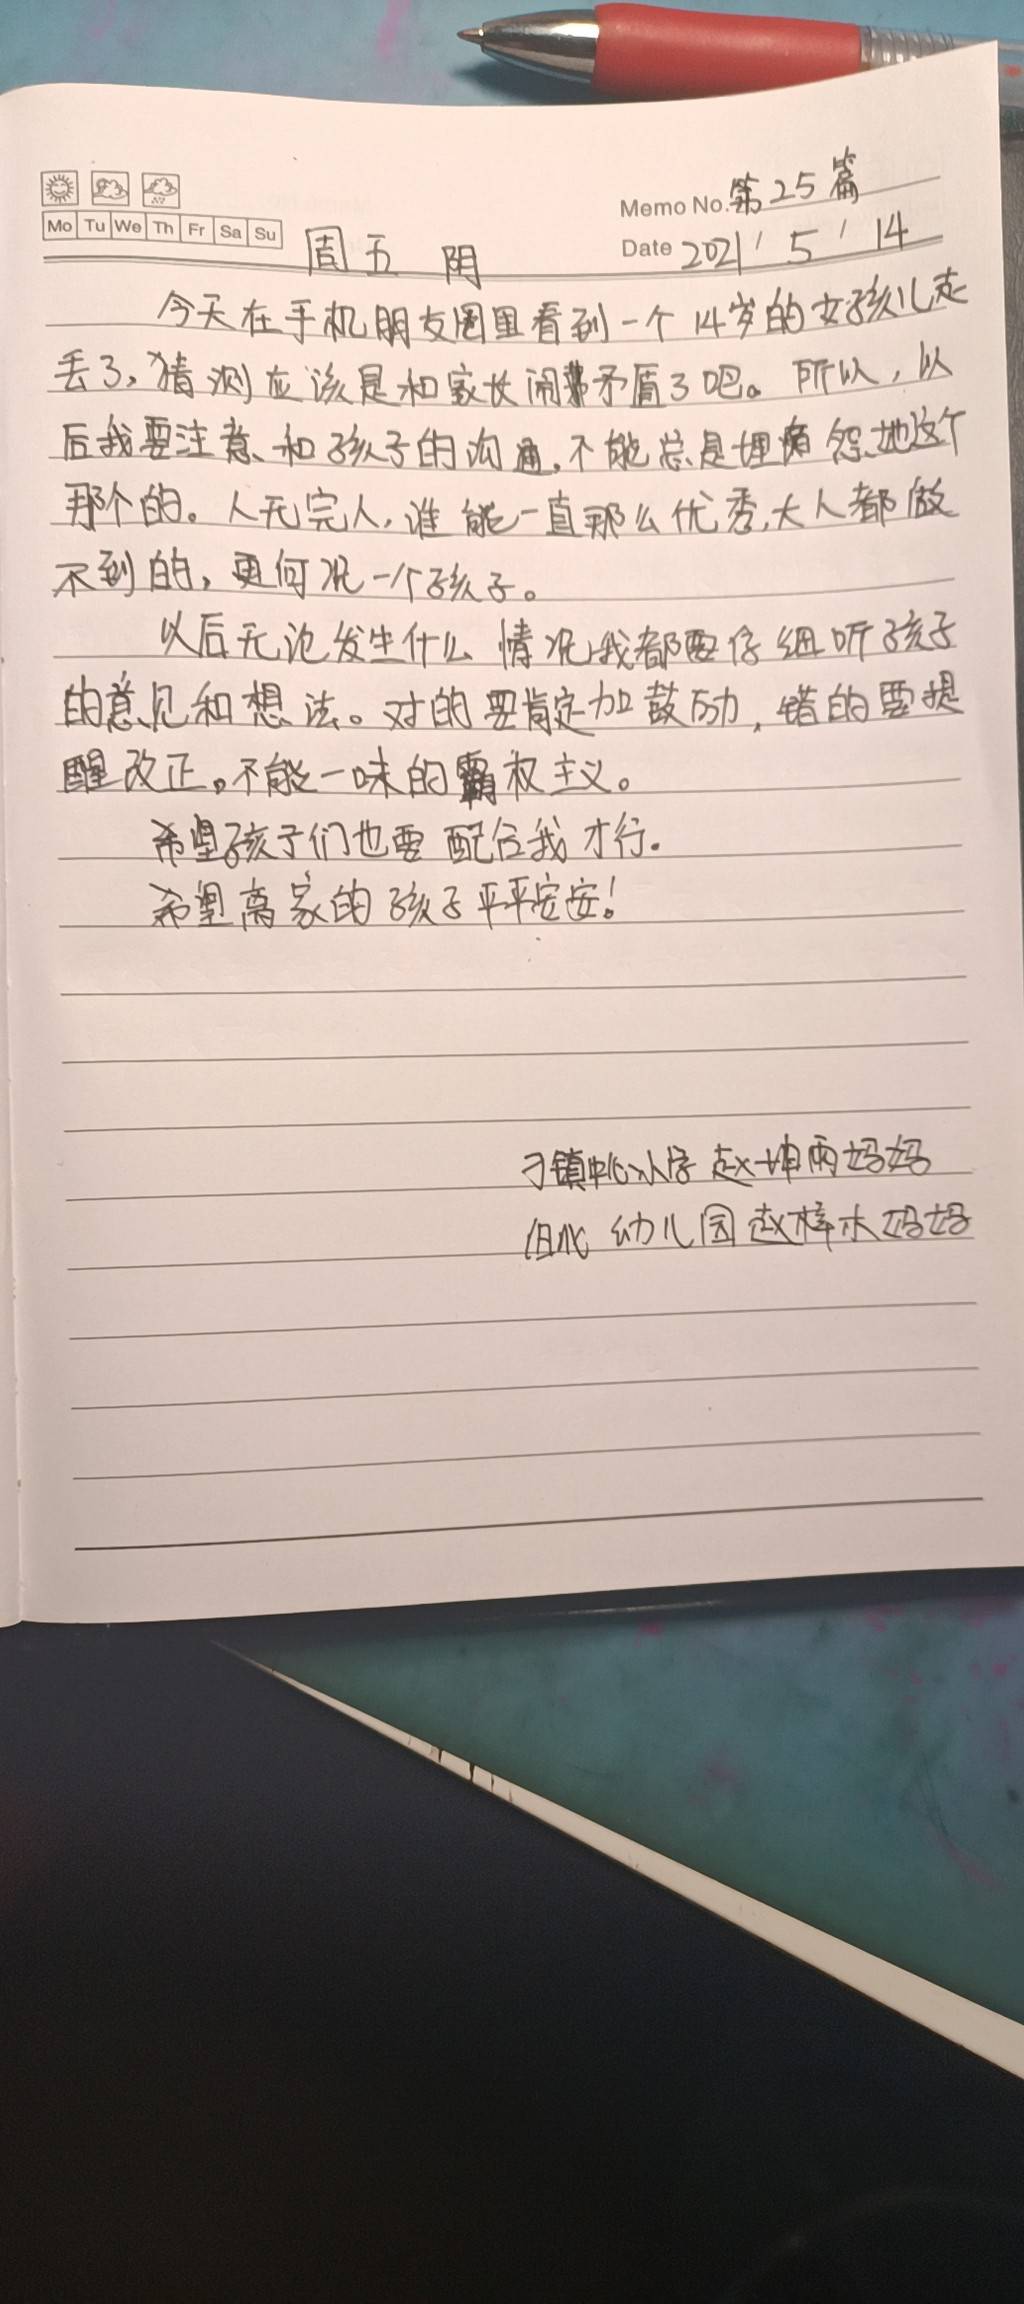 Memo No. 第25篇
Mo Tu We Th Fr Sa Su
Date 2021 / 5 / 14
周五 阴
今天在手机朋友圈里看到一个14岁的女孩儿走
丢了,猜测应该是和家长闹矛盾了吧。所以,以
后我要注意和孩子的沟通,不能总是埋怨她这个
那个的。人无完人,谁能一直那么优秀,大人都做
不到的,更何况一个孩子。
以后无论发生什么情况我都要仔细听孩子
的意见和想法。对的要肯定加鼓励,错的要提
醒改正。不能一味的霸权主义。
希望孩子们也要配合我才行.
希望离家的孩子平平安安!
刁镇中心小学 赵坤雨妈妈
幼儿园 赵梓木妈妈